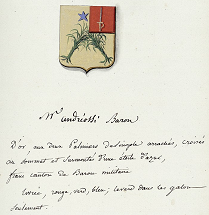 Mr andréossi Baron
D'or aux deux Palmiers de Sinople arrachés, croisés
au sommet et surmontés d'une étoile d'azur,
franc canton de Baron militaire
Livrée, rouge, verd, bleu; le verd dans les galons
seulement.